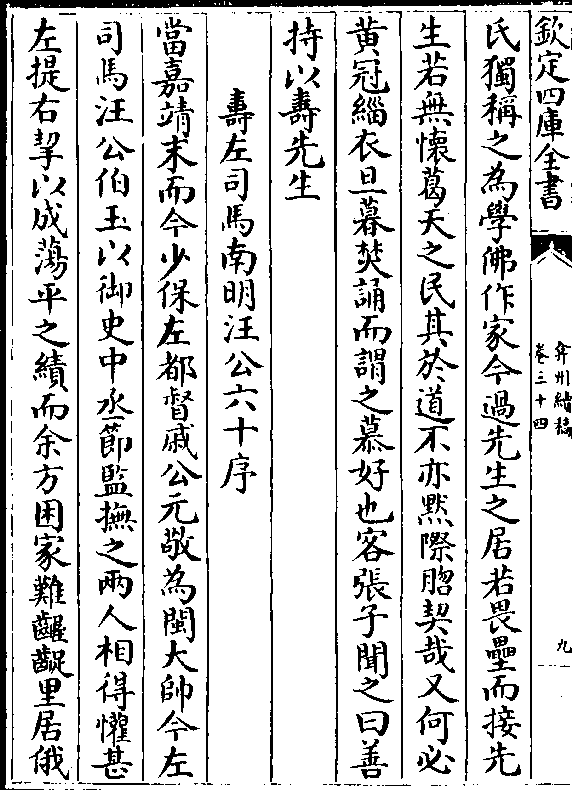 欽定四庫全書
弇州續稿
卷三十四
九
氏獨稱之為學佛作家今過先生之居若畏壘而接先
生若無懷葛天之民其於道不亦默際脗契哉又何必
黃冠緇衣旦暮焚誦而謂之慕好也客張子聞之曰善
持以壽先生
壽左司馬南明汪公六十序
當嘉靖末而今少保左都督戚公元敬為閩大帥今左
司馬汪公伯玉以御史中丞節監撫之兩人相得懽甚
左提右挈以成蕩平之績而余方困家難齷齪里居俄